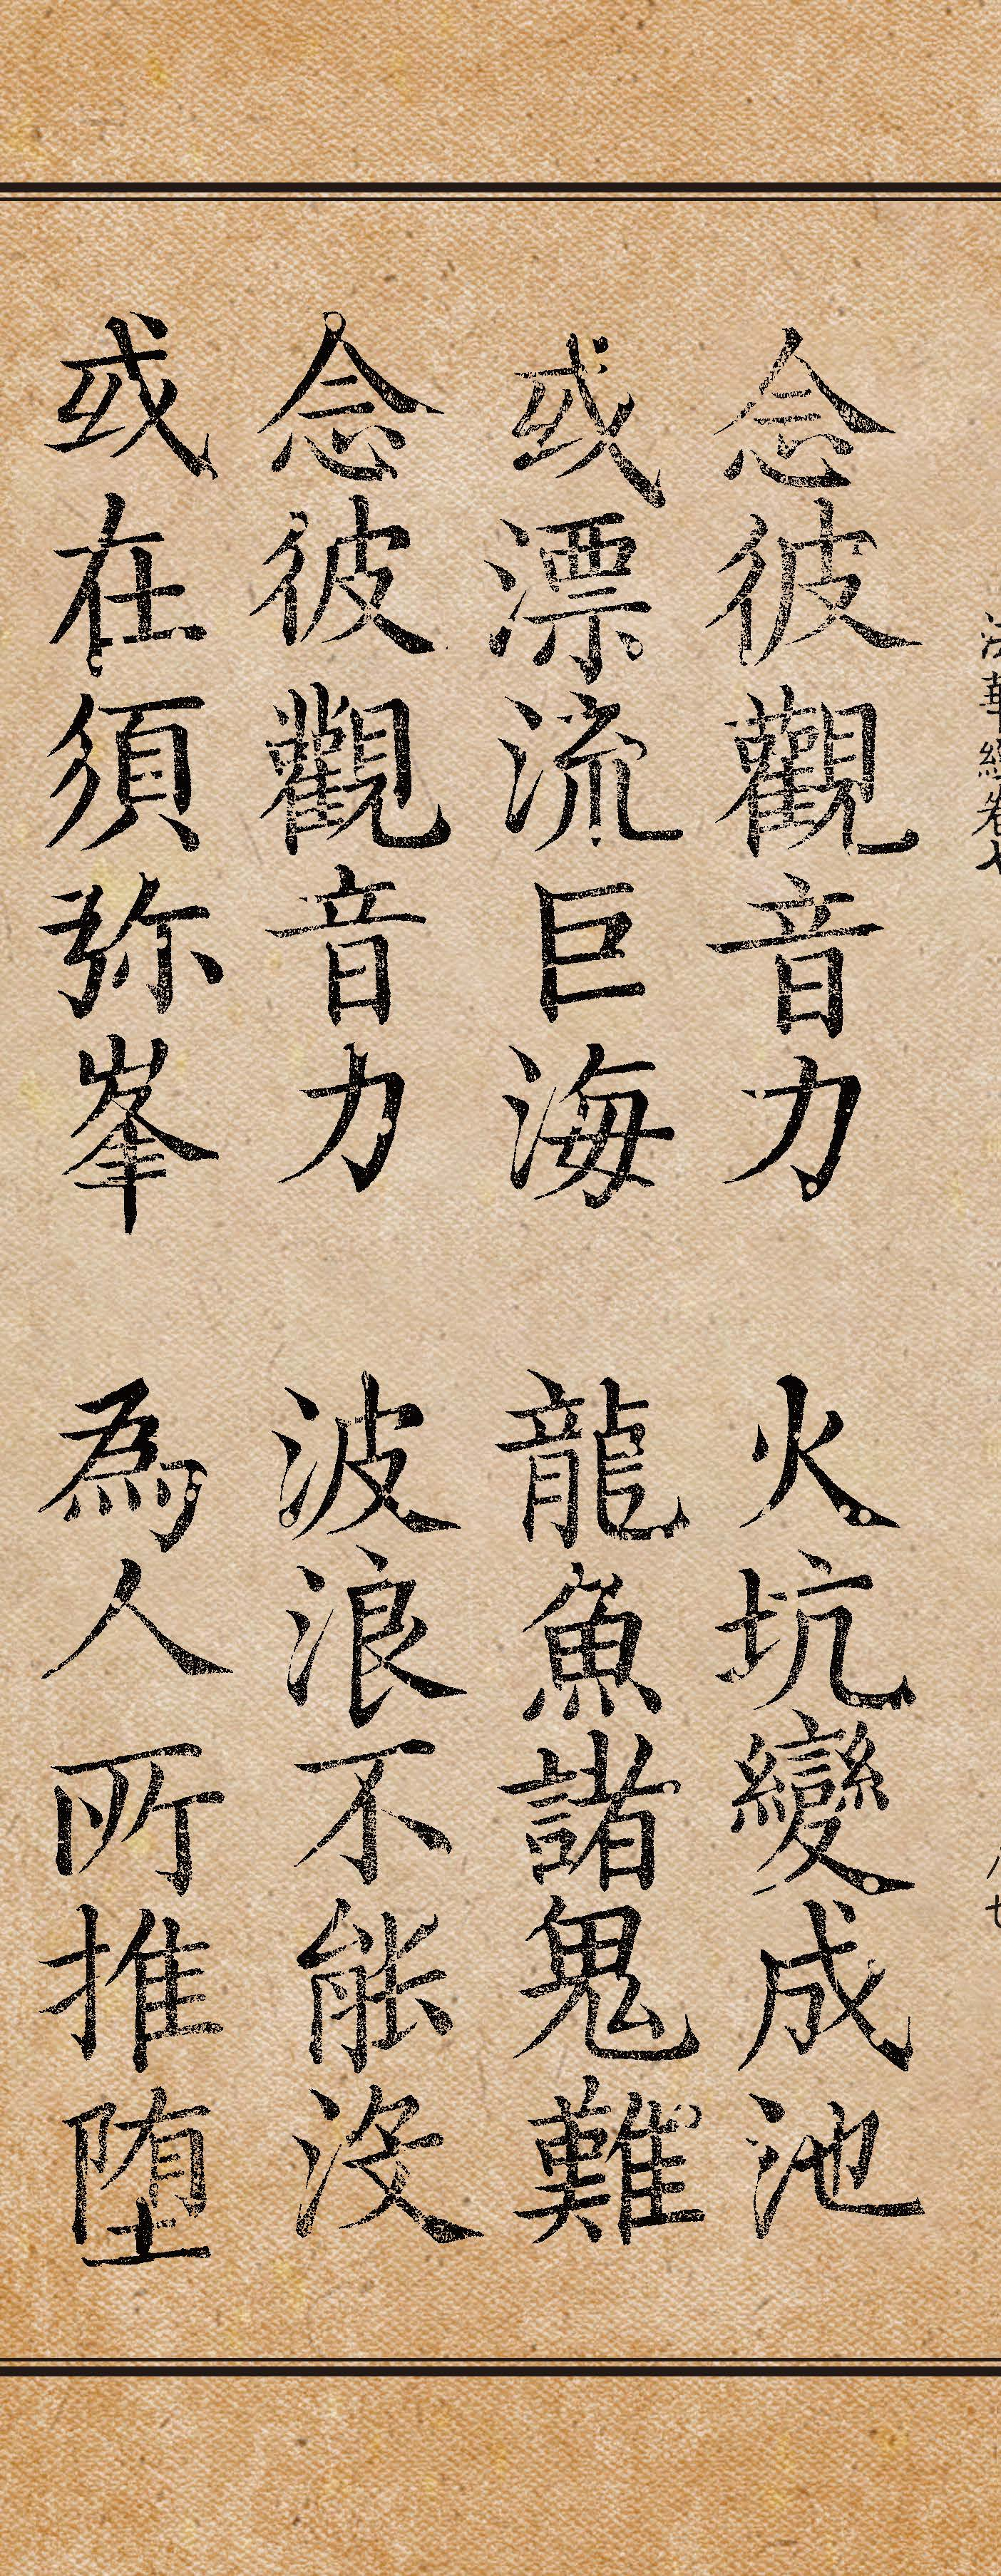 法華經卷七
念彼觀音力 火坑變成池
或漂流巨海 龍魚諸鬼難
念彼觀音力 波浪不能沒
或在須弥峯 為人所推堕